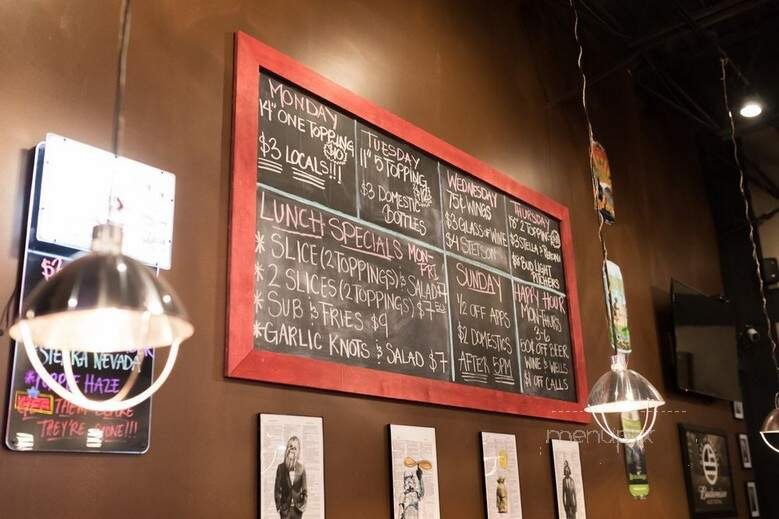 MONDAY
14" ONE TOPPING
$10
$3 LOCALS!!!
TUESDAY
11" 5 TOPPING
$3 DOMESTIC
BOTTLES
WEDNESDAY
75¢ WINGS
$3 GLASS OF WINE
$4 STETSON
THURSDAY
18" 2 TOPPING
BUD LIGHT
PITCHERS
LUNCH SPECIALS MON-
FRI
* SLICE (2 TOPPINGS) & SALAD
* 2 SLICES (2 TOPPINGS) $7
* SUB & FRIES $9
* GARLIC KNOTS & SALAD $7
SUNDAY
1/2 OFF APPS
$2 DOMESTICS
AFTER 5PM
HAPPY HOUR
MON-THURS
3-6
50¢ OFF BEER
WINE & WELLS
$1 OFF CALLS
SIERRA NEVADA
* PURPLE HAZE
THEM BEFORE
THEY'RE GONE!!!
Budweiser
menupix